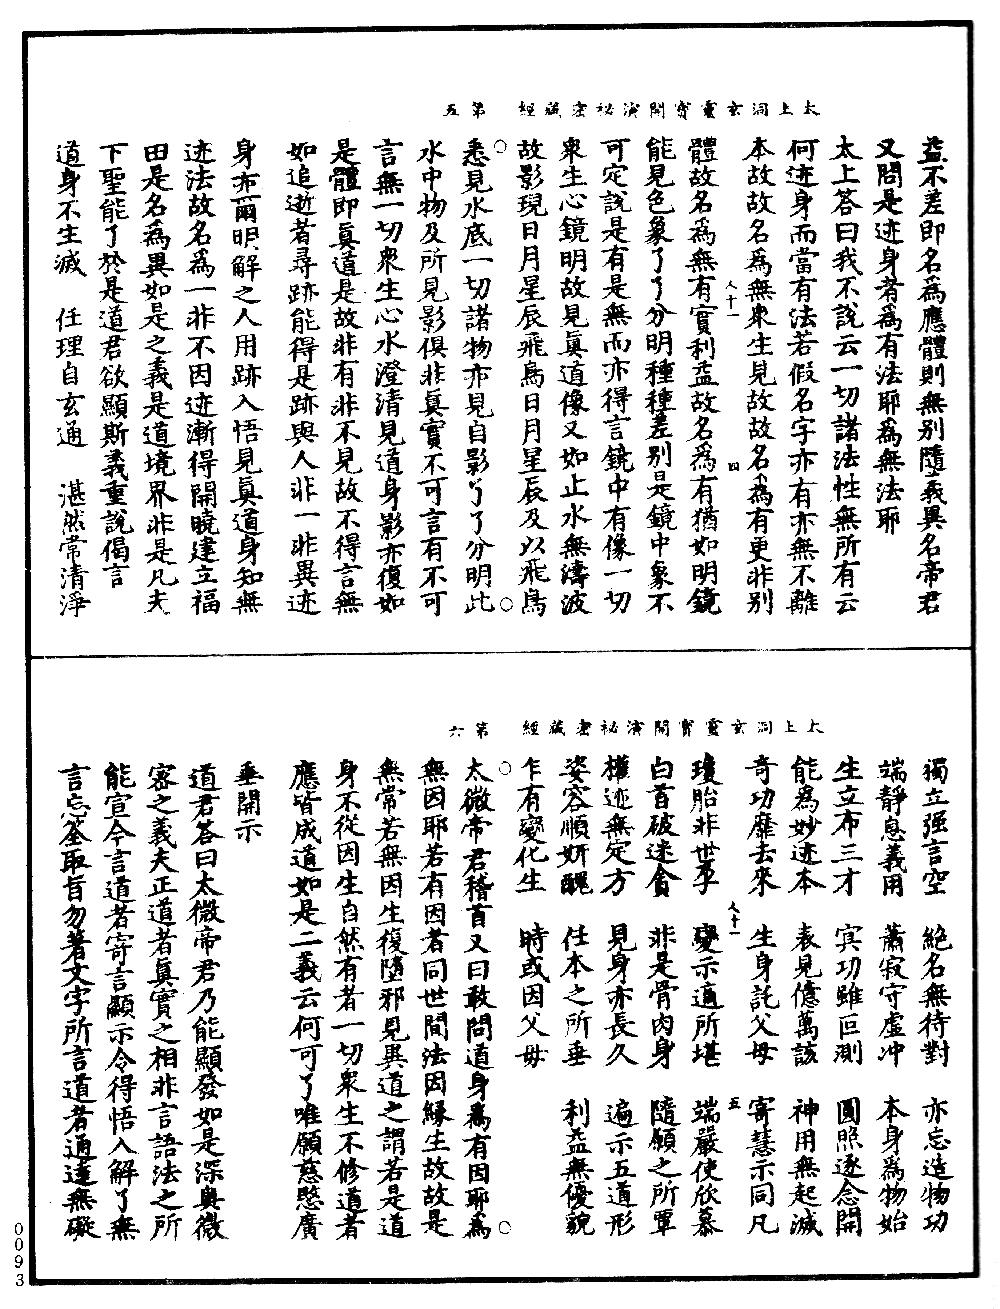 太上洞玄靈寶開演祕密藏經　第五
益不差即名爲應體則無別隨義異名帝君
又問是迹身者爲有法耶爲無法耶
太上答曰我不說云一切諸法性無所有云
何迹身而當有法若假名字亦有亦無不離
本故故名爲無衆生見故故名爲有更非別
體故名爲無有實利益故名爲有猶如明鏡
人十一　四
能見色象了了分明種種差別是鏡中象不
可定說是有是無而亦得言鏡中有像一切
衆生心鏡明故見真道像又如止水無濤波
故影現日月星辰飛鳥日月星辰及以飛鳥
悉見水底一切諸物亦見自影了了分明此
水中物及所見影俱非真實不可言有不可
言無一切衆生心水澄清見道身影亦復如
是體即真道是故非有非不見故不得言無
如追逝者尋跡能得是跡與人非一非異迹
身亦爾明解之人用跡入悟見真道身知無
迹法故名爲一非不因迹漸得開曉建立福
田是名爲異如是之義是道境界非是凡夫
下聖能了於是道君欲顯斯義重說偈言
道身不生滅　任理自玄通　湛然常清淨
太上洞玄靈寶開演祕密藏經　第六
獨立强言空　絶名無待對　亦忘造物功
端靜息義用　蕭寂守虛沖　本身爲物始
生立布三才　冥功雖叵測　圓照逐念開
能爲妙迹本　表見億萬該　神用無起滅
奇功靡去來　生身託父母　寄慧示同凡
瓊胎非世孕　變示適所堪　端嚴使欣慕
人十一　五
白首破迷貪　非是骨肉身　隨願之所覃
權迹無定方　見身亦長久　遍示五道形
姿容順妍醜　任本之所垂　利益無優貌
乍有變化生　時或因父母
太微帝君稽首又曰敢問道身爲有因耶爲
無因耶若有因者同世間法因緣生故故是
無常若無因生復隨邪見異道之謂若是道
身不從因生自然有者一切衆生不修道者
應皆成道如是二義云何可了唯願慈愍廣
垂開示
道君答曰太微帝君乃能顯發如是深奧微
密之義夫正道者真實之相非言語法之所
能宣今言道者寄言顯示令得悟入解了無
言忘筌取旨勿著文字所言道者通達無礙
0093